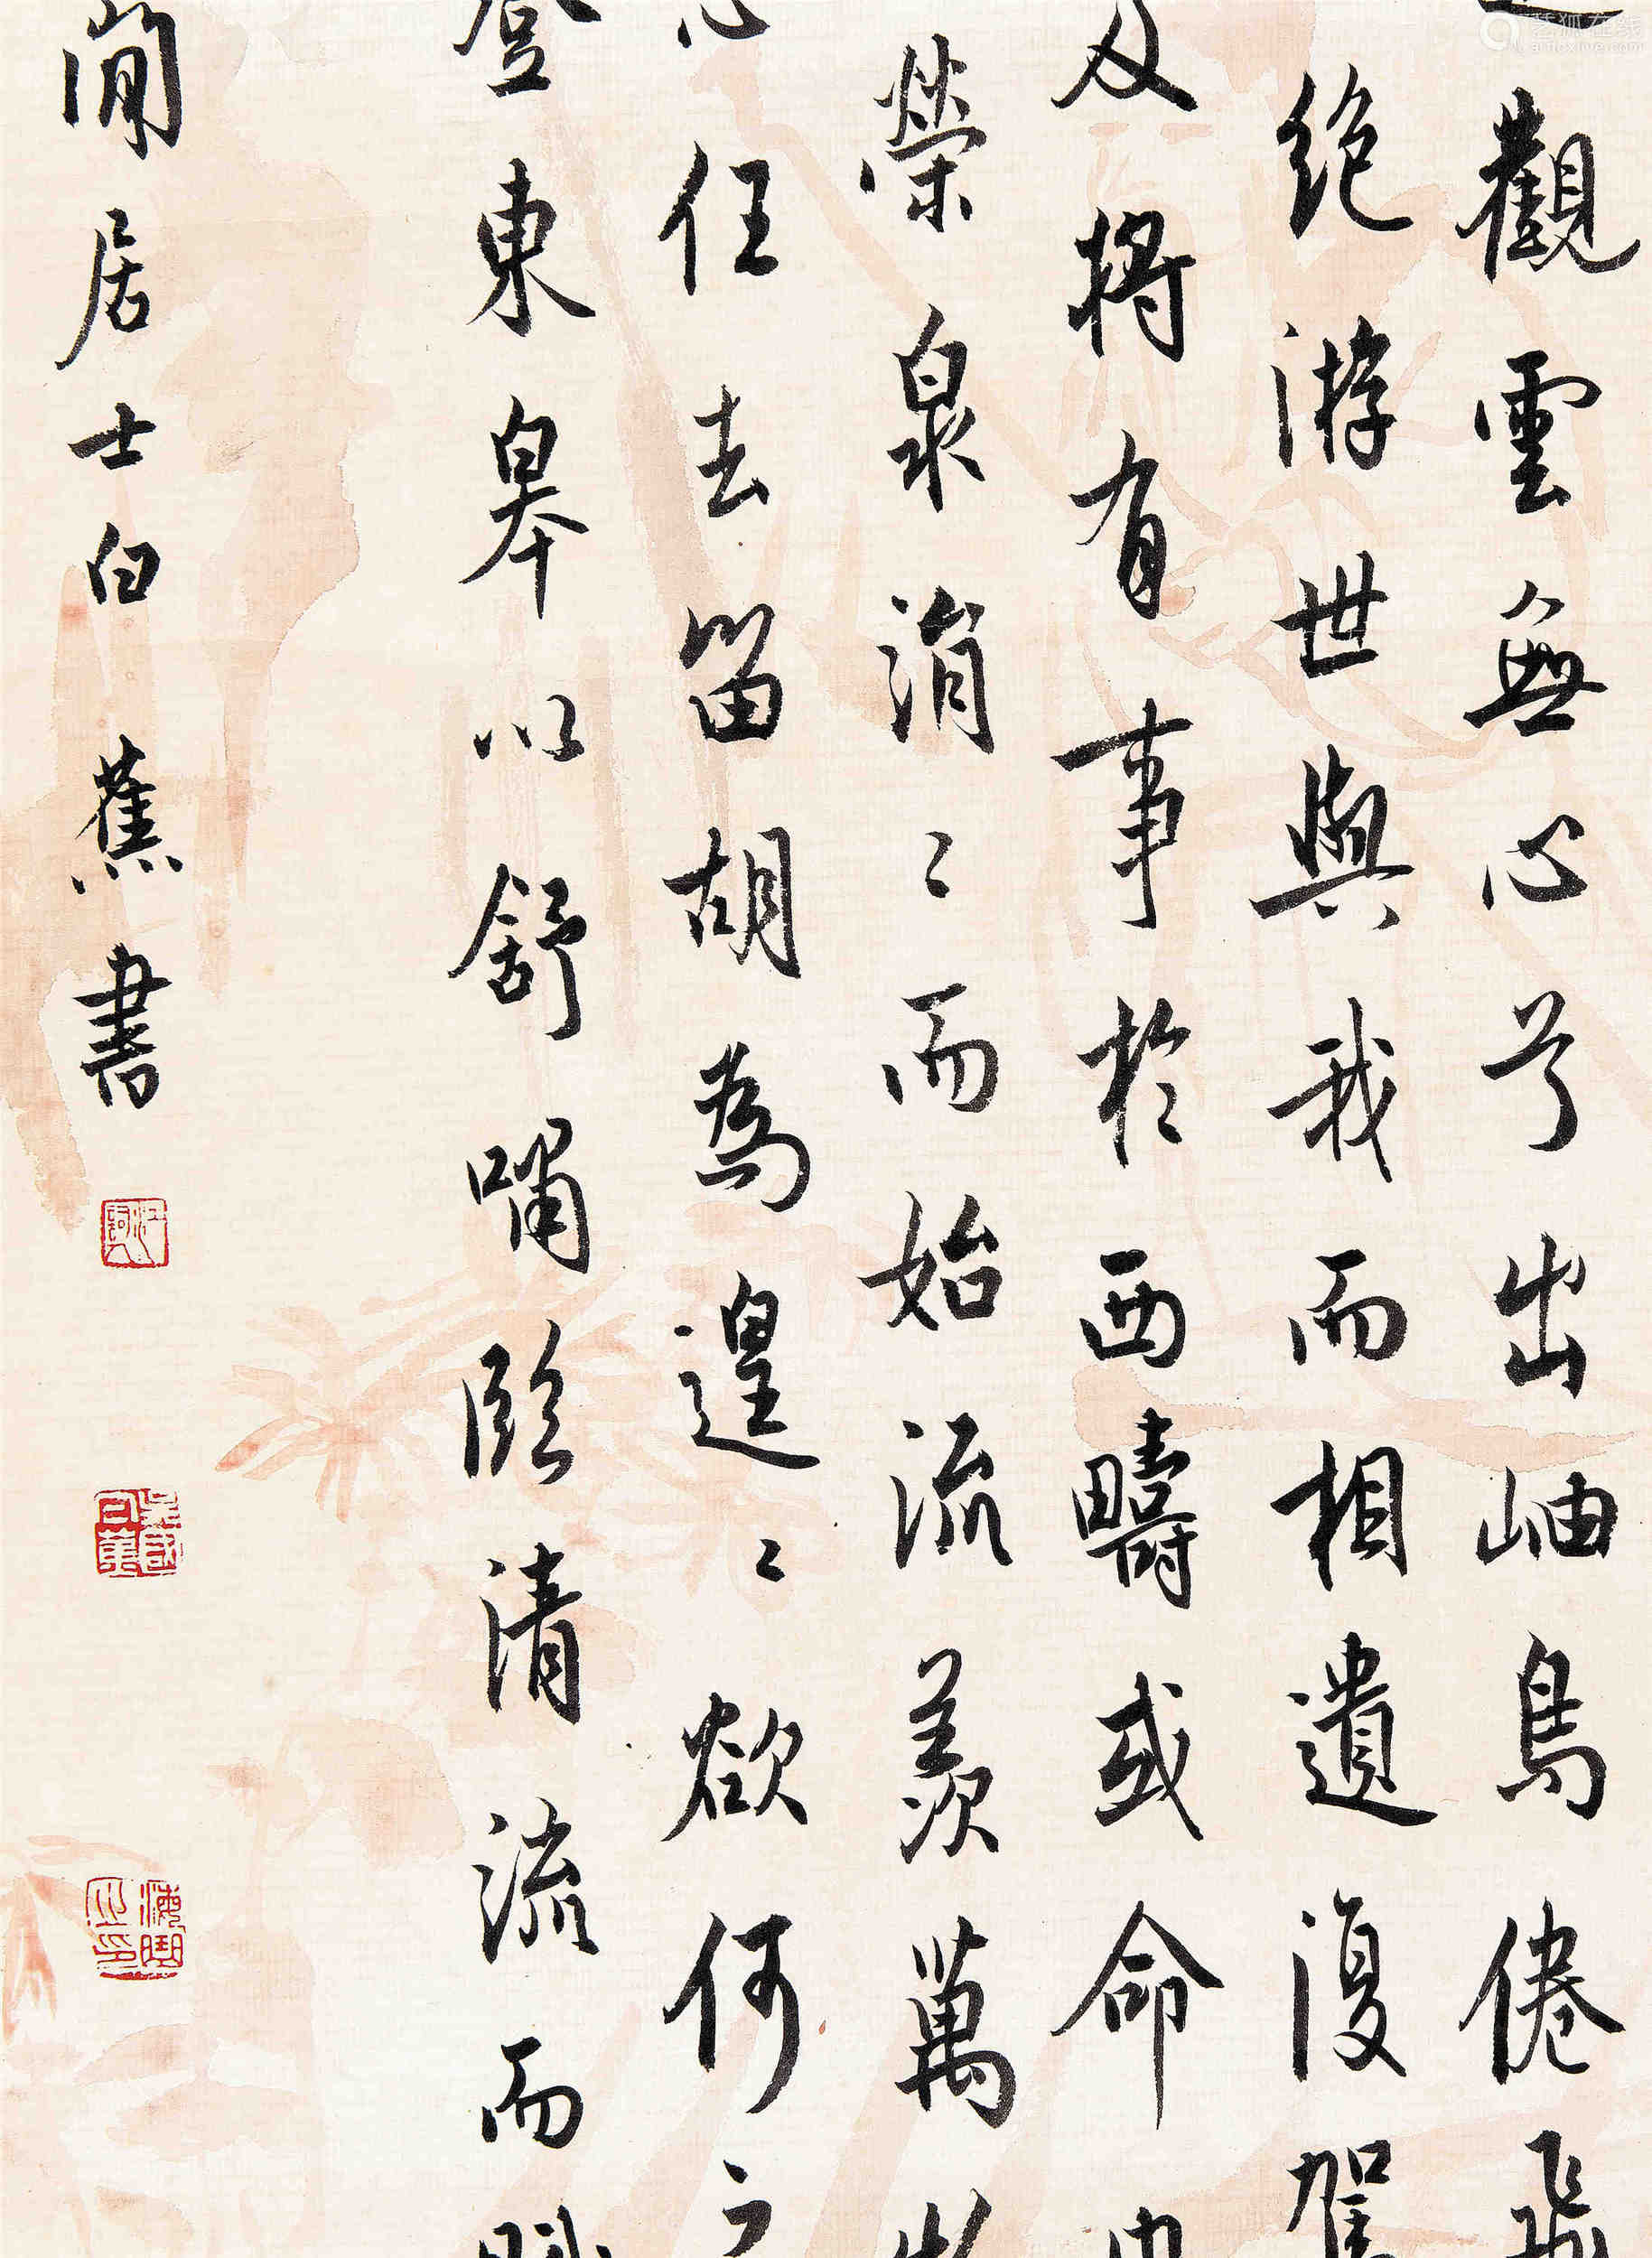 觀雲無心兮出岫鳥倦飛
絶游世與我而相遺復駕
及將有事於西疇或命巾
榮泉涓〻而始流羡萬
心任去留胡為遑〻欲何之
登東皋以舒嘯臨清流而賦
閒居士白蕉書
艺狐在线
artfoxlive.com